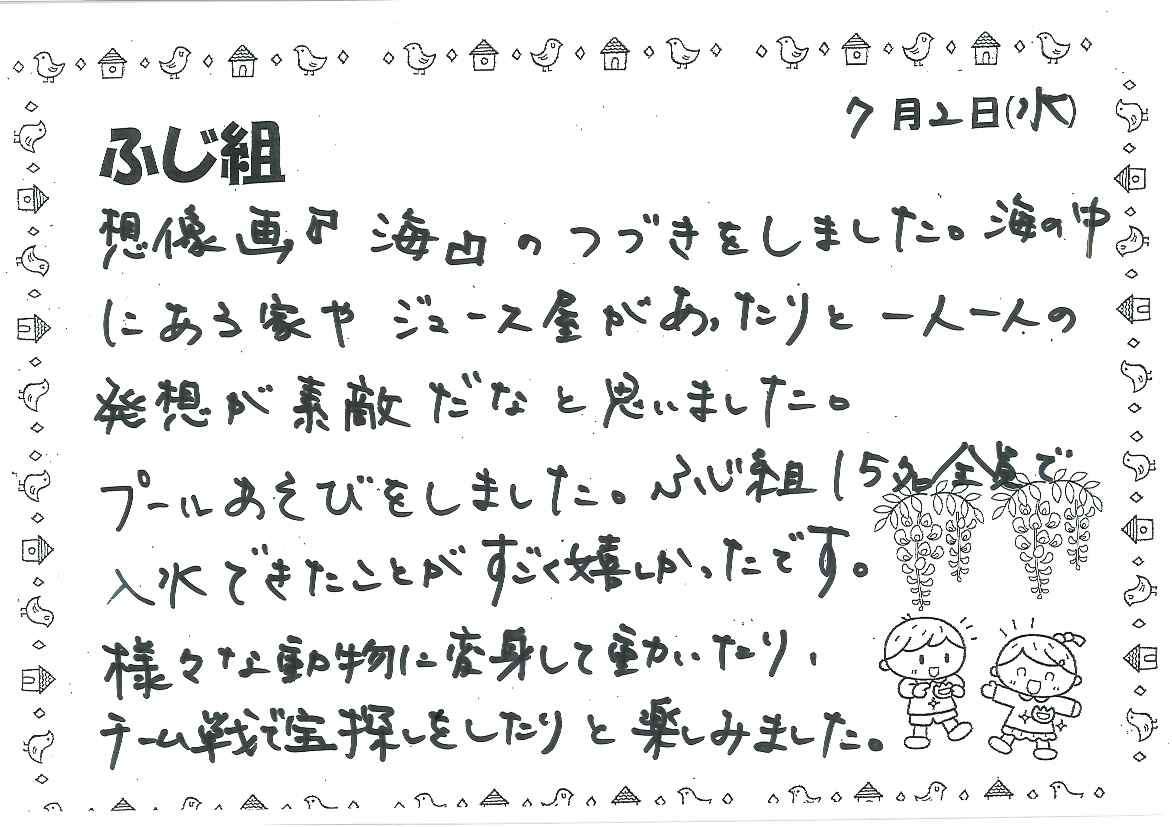 7月2日(水)
ふじ組
想像画『海』のつづきをしました。海の中
にある家やジュース屋があったりと一人一人の
発想が素敵だなと思いました。
プールあそびをしました。ふじ組15名全員で
入水できたことがすごく嬉しかったです。
様々な動物に変身して動いたり、
チーム戦で宝探しをしたりと楽しみました。